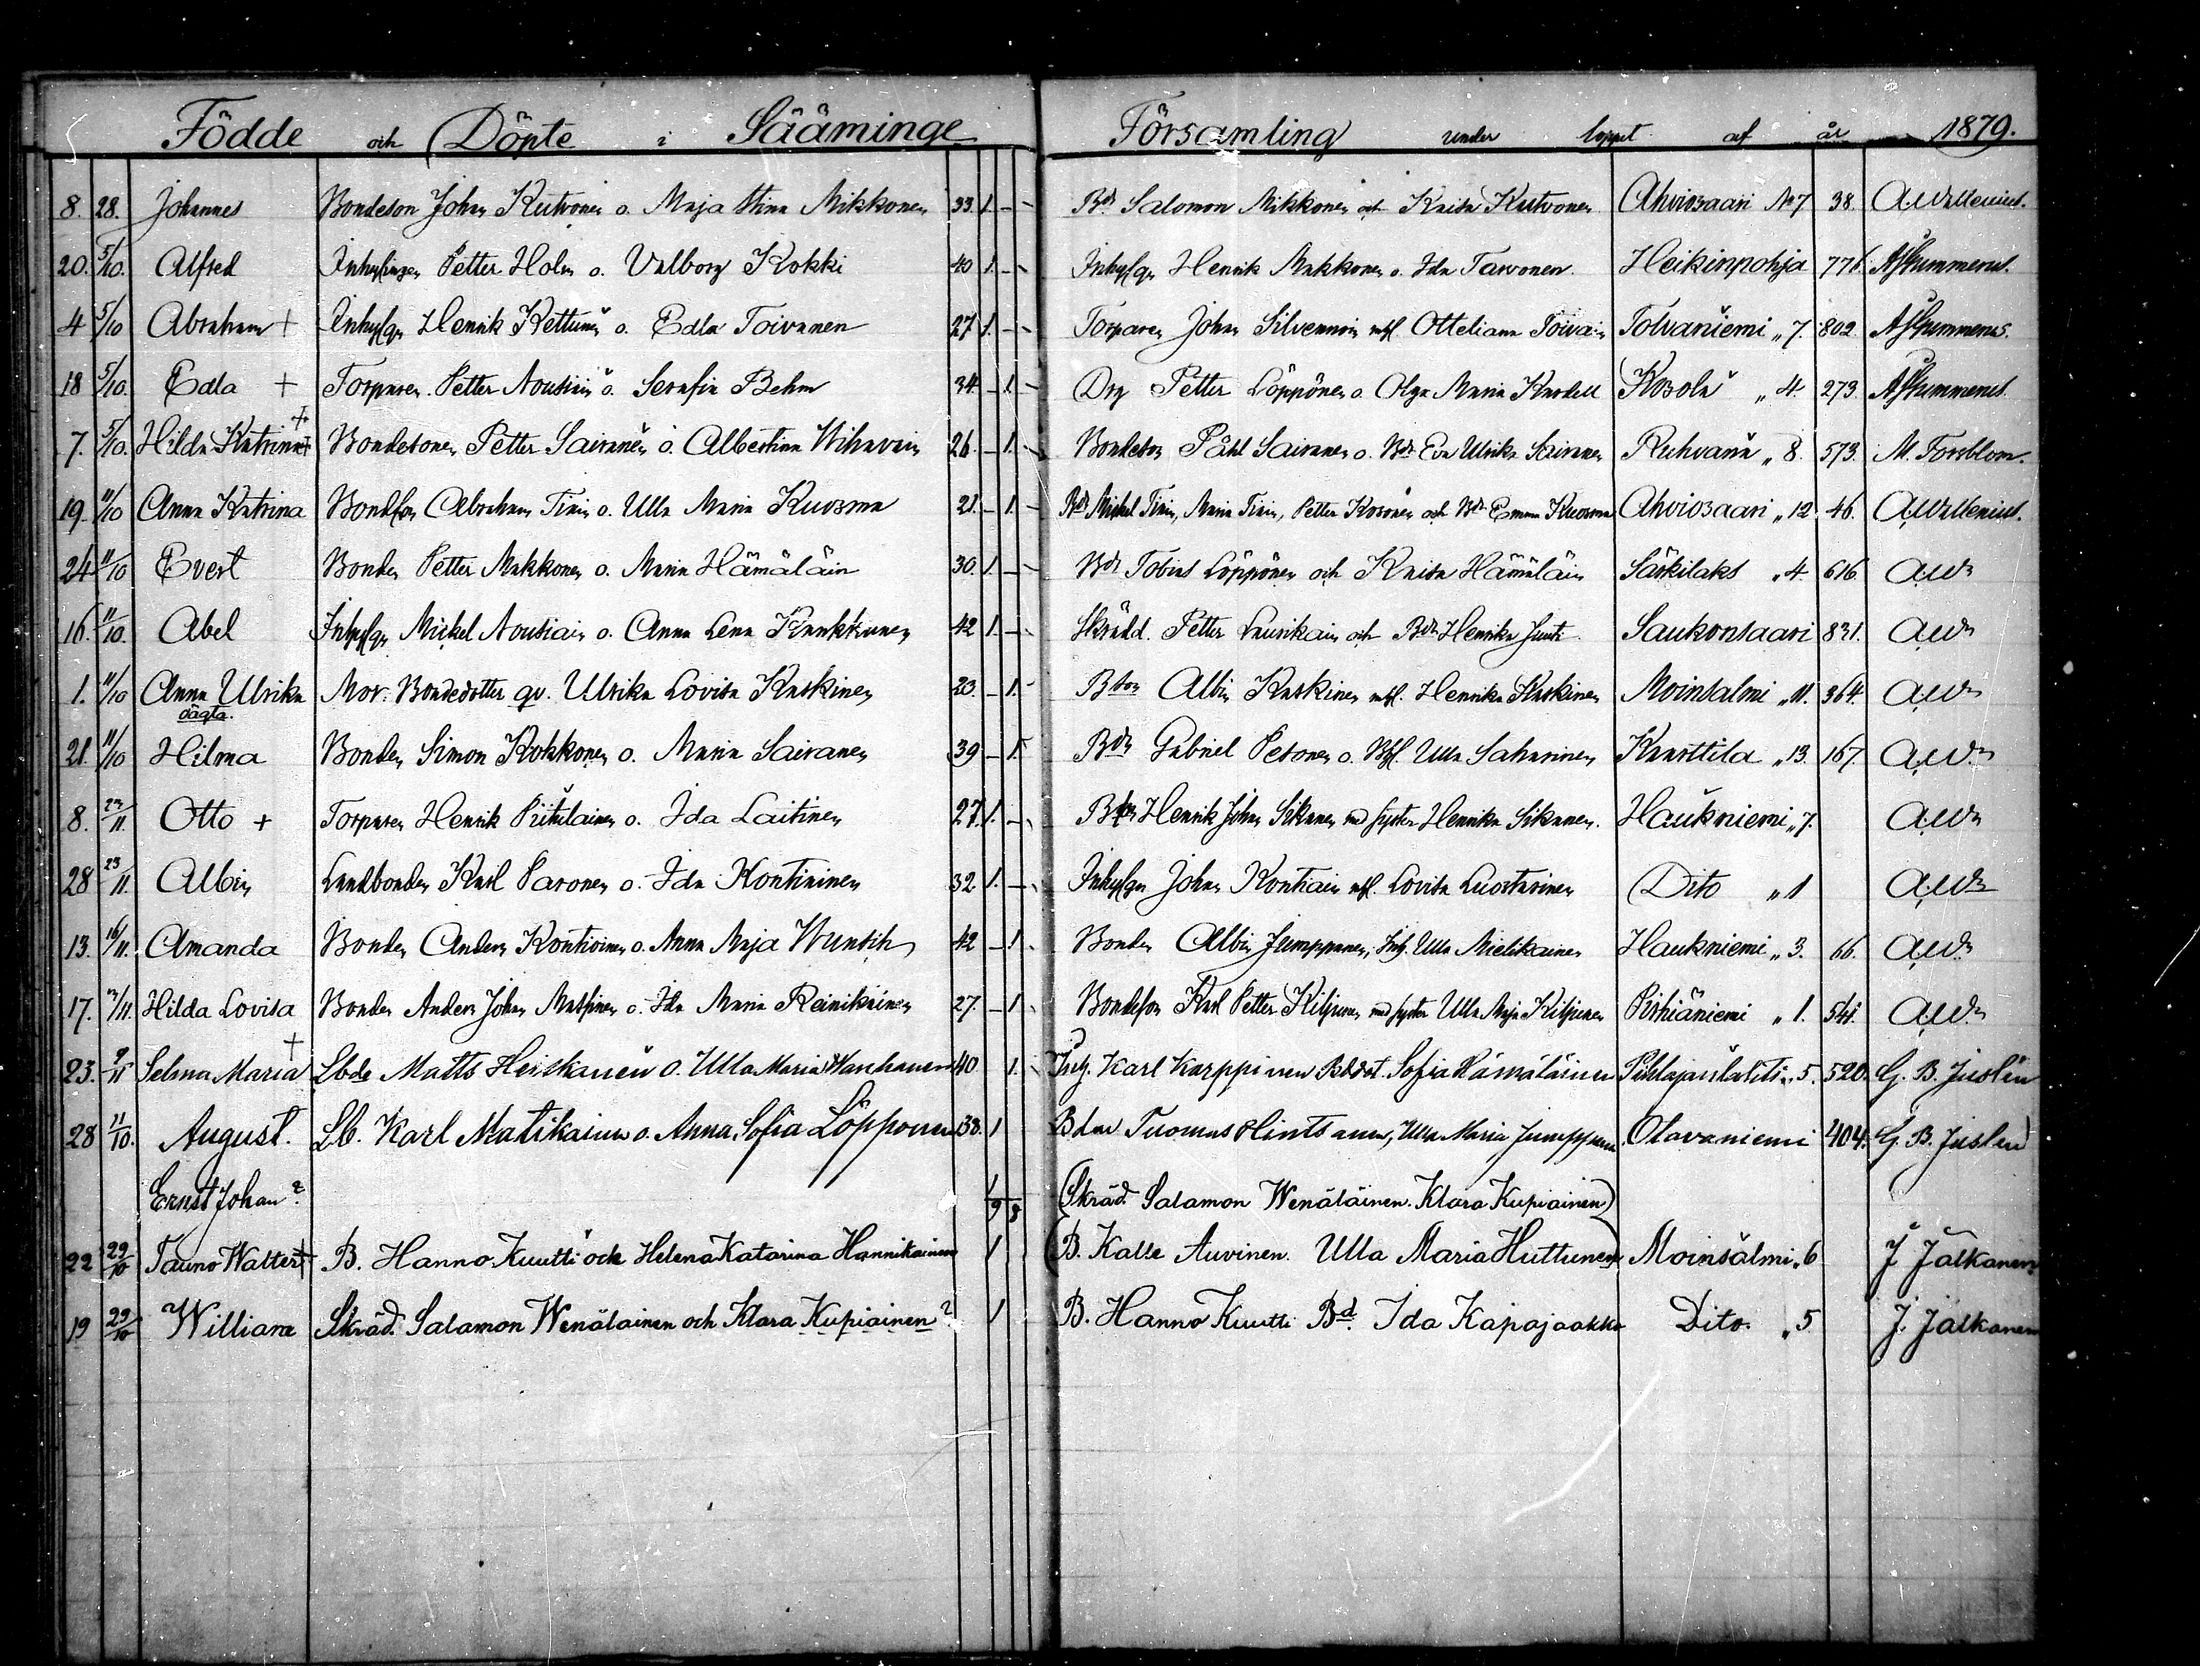 Födde och Döpte i Sääminge Församling under loppet af år 1879.
8. 28. Johannes Bondeson Johan Kutvonen o. Maja Stina Mikkonen 33. 1. - - Bdr Salomon Mikkonen och Kaisa Kutvonen Ahviosaari No 7 38. A.Wallenius.
20. 5/10. Alfred Inhysingen Petter Holm o. Valborg Kokki 40 1. - - Inhysgn Henrik Makkonen o. Ida Tarvonen Heikinpohja 776.
4 5/10 Abraham + Inhysgn Henrik Kettunen o. Edla Toivanen 27 1. - - Torparen Johan Silvennoin Otteliana Toivain Tolvaniemi " 7. 802.
18 5/10. Edla + Torparen Petter Nousiain o. Serafia Behm 34. - 1. - Drg Petter Löppönen o. Olga Maria Kardell Kosola " 4. 273.
7. 5/10. Hilda Katrina + Bondesonen Petter Sairanen o. Albertina Wihavain 26. - 1. - Bondeson Påhl Sairanen o. Bdr Eva Ulrika Sairanen Ruhvana " 8. 573. M. Forsblom.
19. 11/10 Anna Katrina Bondson Abraham Tiain o. Ulla Maria Kuosma 21. - 1. - Bdr Mickel Tiain, Maria Tiain, Petter Kosonen och Bdr Emma Kuosma Ahviosaari " 12. 46. A.Wallenius.
24 11/10 Evert Bonden Petter Makkonen o. Maria Hämäläin 30. 1. - - Bdr Tobias Löppönen och Kaisa Hämäläin Särkilaks " 4. 616. A.W.
16. 11/10. Abel Inhysgn Mickel Nousiain o. Anna Lena Kaukkunen 42 1. - Skrädd. Petter Laurikain och Bdr Henrika Juuti Saukonsaari 831. A.W.
1. 11/10 Anna Ulrika oägta. Mor. Bondedotter qv. Ulrika Lovisa Kaskinen 23. - 1. - Bson Albin Kaskinen Henrika Kaskinen Moinsalmi " 11. 364. A.W.
21. 11/10 Hilma Bonden Simon Kokkonen o. Maria Sairanen 39 - 1. Bdr Gabriel Pesonen o. Ulla Saharinen Kaarttila " 13. 167. A.W.
8. 23/11. Otto + Torparen Henrik Piitulainen o. Ida Laitinen 27. 1. - Henrik Johan Sikanen med syster Henrika Sikanen. Haukniemi " 7. A.W.
28 23/11. Albin Landbonden Karl Paronen o. Ida Kontininen 32. 1. - Inhysgn Johan Kontiain Lovisa Luostarinen Dito " 1 A.W.
13. 16/11. Amanda Bonden Anders Kontioinen o. Anna Maja Wunsch 42 - 1. Bonden Albin Jumppanen, Inh. Ulla Mielikainen Haukniemi " 3. 66. A.W.
17. /11. Hilda Lovisa Bonden Anders Johan Matsinen o. Ida Maria Reinikainen 27. - 1. Bondeson Karl Petter Kiljunen med syster Ulla Maja Kiljunen Pirhiäniemi " 1. 541. A.W.
23. 9/11 Selma Maria + Lbde Matts Heiskanen o. Ulla Maria Manhanen 40. 1. Inh. Karl Karppinen Bddot. Sofia Hämäläinen Pihlajanlahti " 5. 520. G. B. Juslén
28 11/10. August. Lb. Karl Matikainen o. Anna Sofia Löpponen 38. 1 Bden Tuomas Hintsanen, Ulla Maria Jumppanen Olavaniemi 404. G. B. Juslén
Ernst Johan? 1 9 8 (Skräd. Salamon Wenäläinen. Klara Kupiainen)
22 29/10 Tauno Walter + B. Hanno Kuutti och Helena Katarina Hannikainen 1 (B. Kalle Auvinen. Ulla Maria Huttunen) Moinsalmi " 6 J. Jalkanen
19 29/10 William Skräd. Salamon Wenäläinen och Klara Kupiainen? 1 B. Hanno Kuutti Bd. Ida Kapajaakko Dito " 5 J. Jalkanen